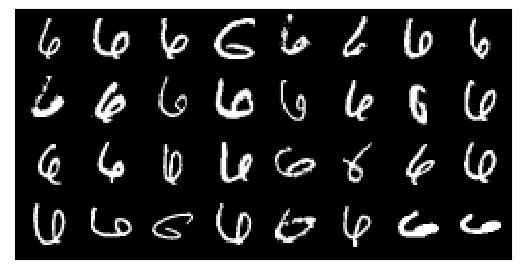 6 6 6 6 6 6 6 6
6 6 6 6 6 6 6 6
6 6 6 6 6 6 6 6
6 6 6 6 6 6 6 6